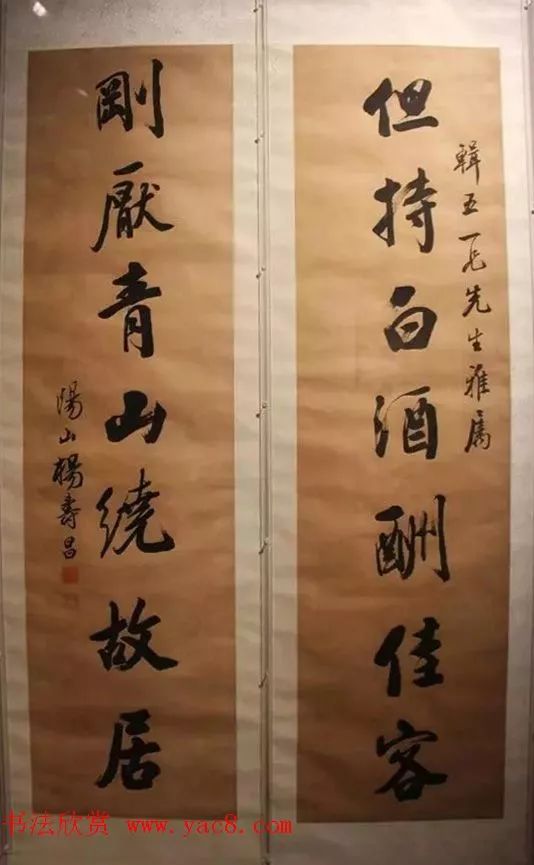 輯五先生雅属
但持白酒酬佳客
剛厭青山繞故居
陽山楊壽昌
书法欣赏 www.yac8.com